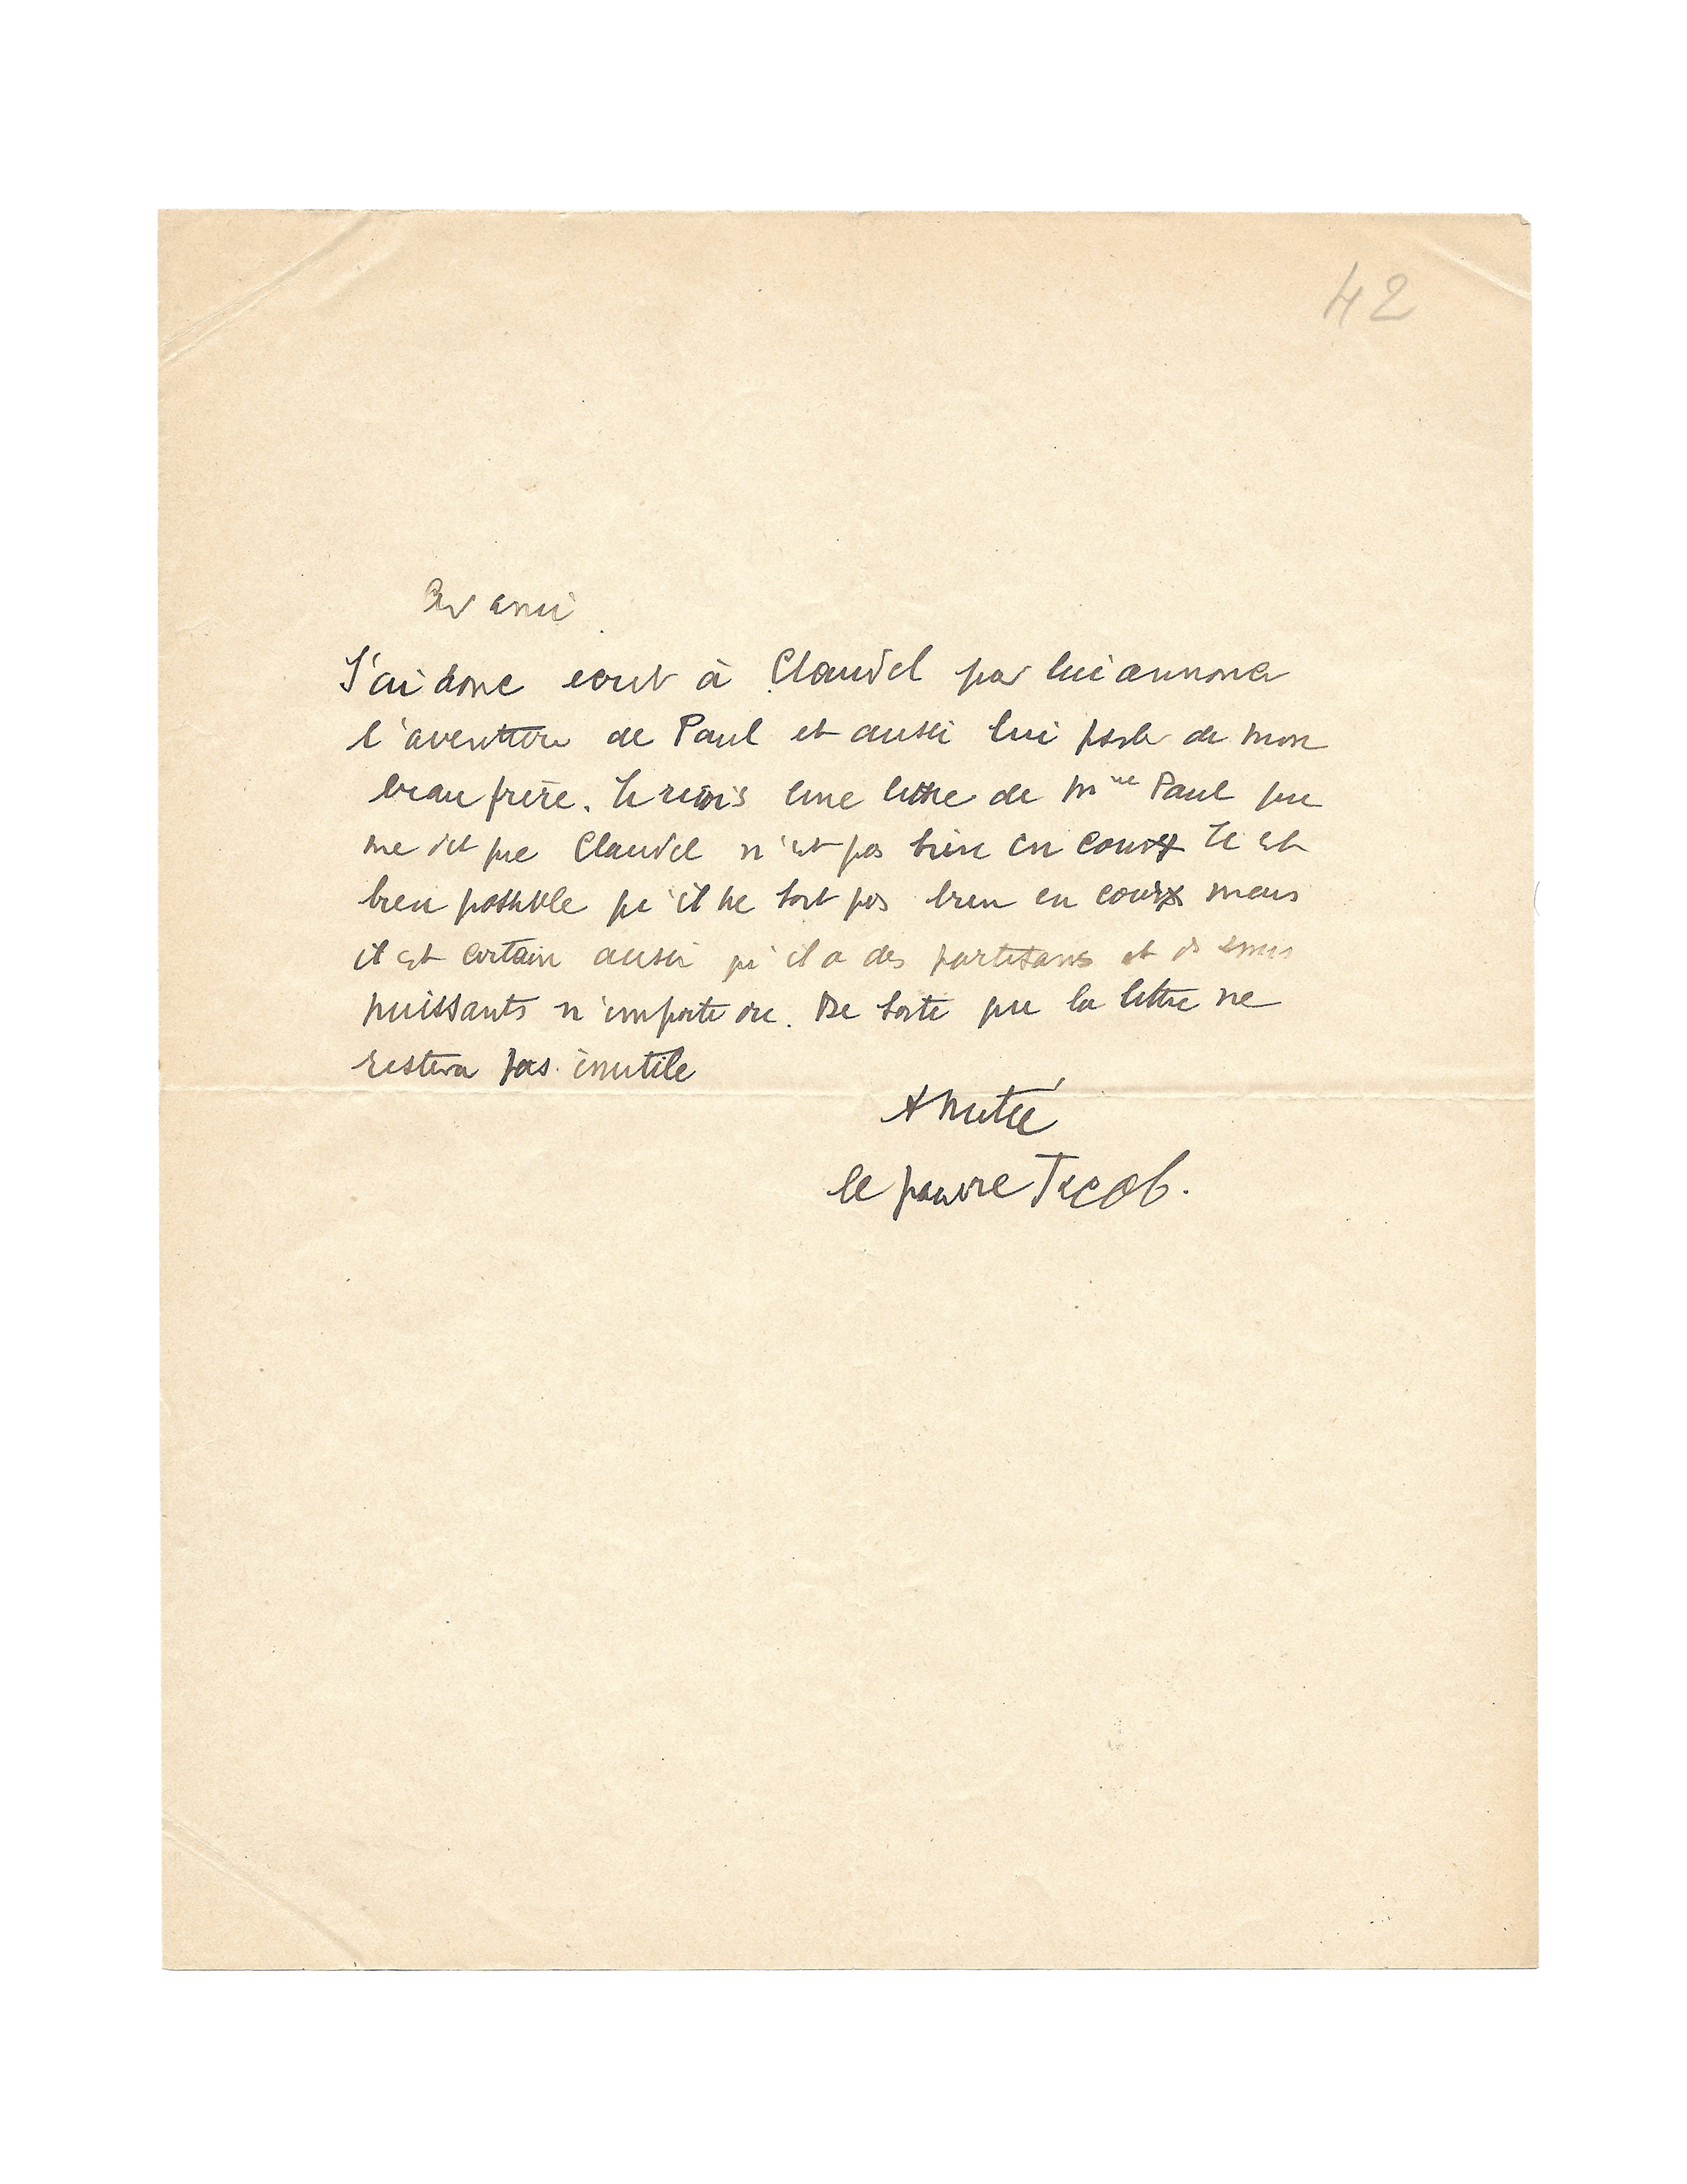 42
Cher ami
J'ai donc ecrit à Claudel pour lui annoncer
l'aventure de Paul et aussi lui parler de mon
beau frère. Je reçois une lettre de Mme Paul qui
me dit que Claudel n'est pas bien en cour Il est
bien possible qu'il ne soit pas bien en cour mais
il est certain aussi qu'il a des partisans et ds amis
puissants n'importe où. De sorte que la lettre ne
restera pas inutile
Amitié
le pauvre Jacob.